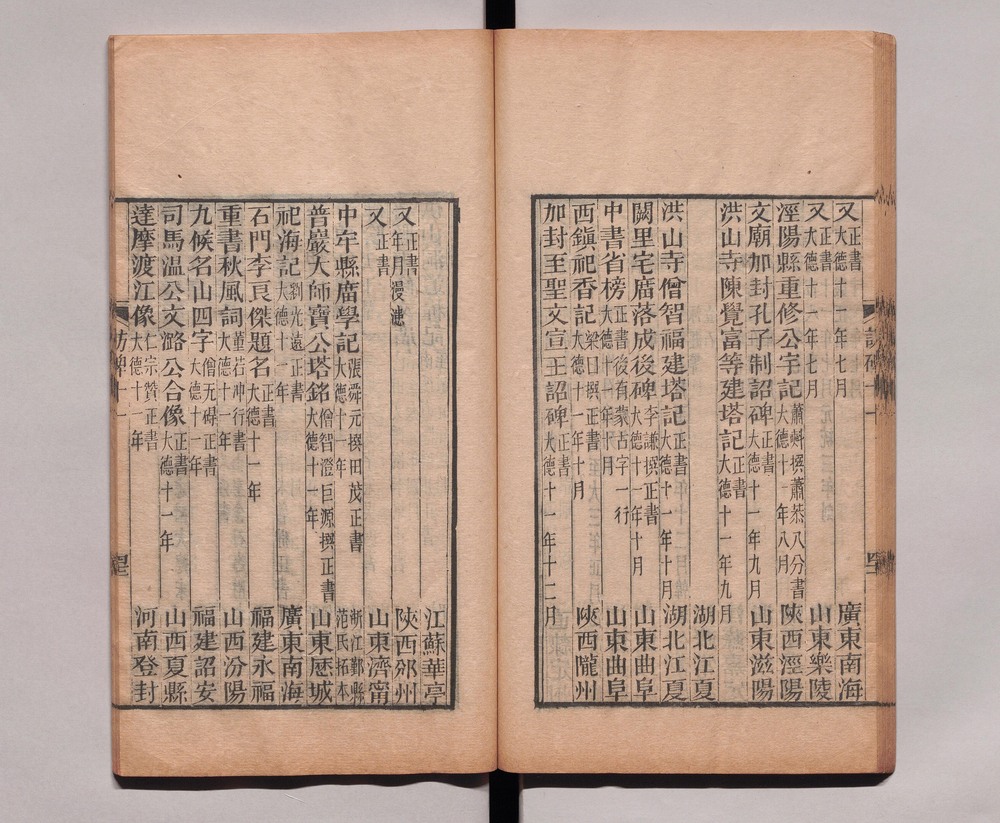 又正書大德十一年七月 廣東南海
又正書大德十一年七月 山東樂陵
涇陽縣重修公宇記蕭㪺撰蕭恭八分書大德十一年八月 陝西涇陽
文廟加封孔子制詔碑正書大德十一年九月 山東滋陽
洪山寺陳覺富等建塔記正書大德十一年九月
湖北江夏
洪山寺僧智福建塔記正書大德十一年十月 湖北江夏
闕里宅廟落成後碑李謙撰正書大德十一年十月 山東曲阜
中書省榜正書後有蒙古字一行大德十一年十月 山東曲阜
西鎮祀香記梁口撰正書大德十一年十月 陝西隴州
加封至聖文宣王詔碑正書大德十一年十二月
江蘇華亭
又正書年月漫漶 陝西邠州
又正書 山東濟甯
中牟縣廟學記張舜元撰田茂正書大德十一年 浙江鄞縣范氏拓本
普巖大師寶公塔銘僧智澄巨源撰正書大德十一年 山東歷城
祀海記劉光遠正書大德十一年 廣東南海
石門李良傑題名正書大德十一年 福建永福
重書秋風詞董若沖行書大德十一年 山西汾陽
九候名山四字僧无碍正書大德十一年 福建詔安
司馬溫公文潞公合像正書大德十一年 山西夏縣
達摩渡江像仁宗贊正書大德十一年 河南登封
訪碑十一